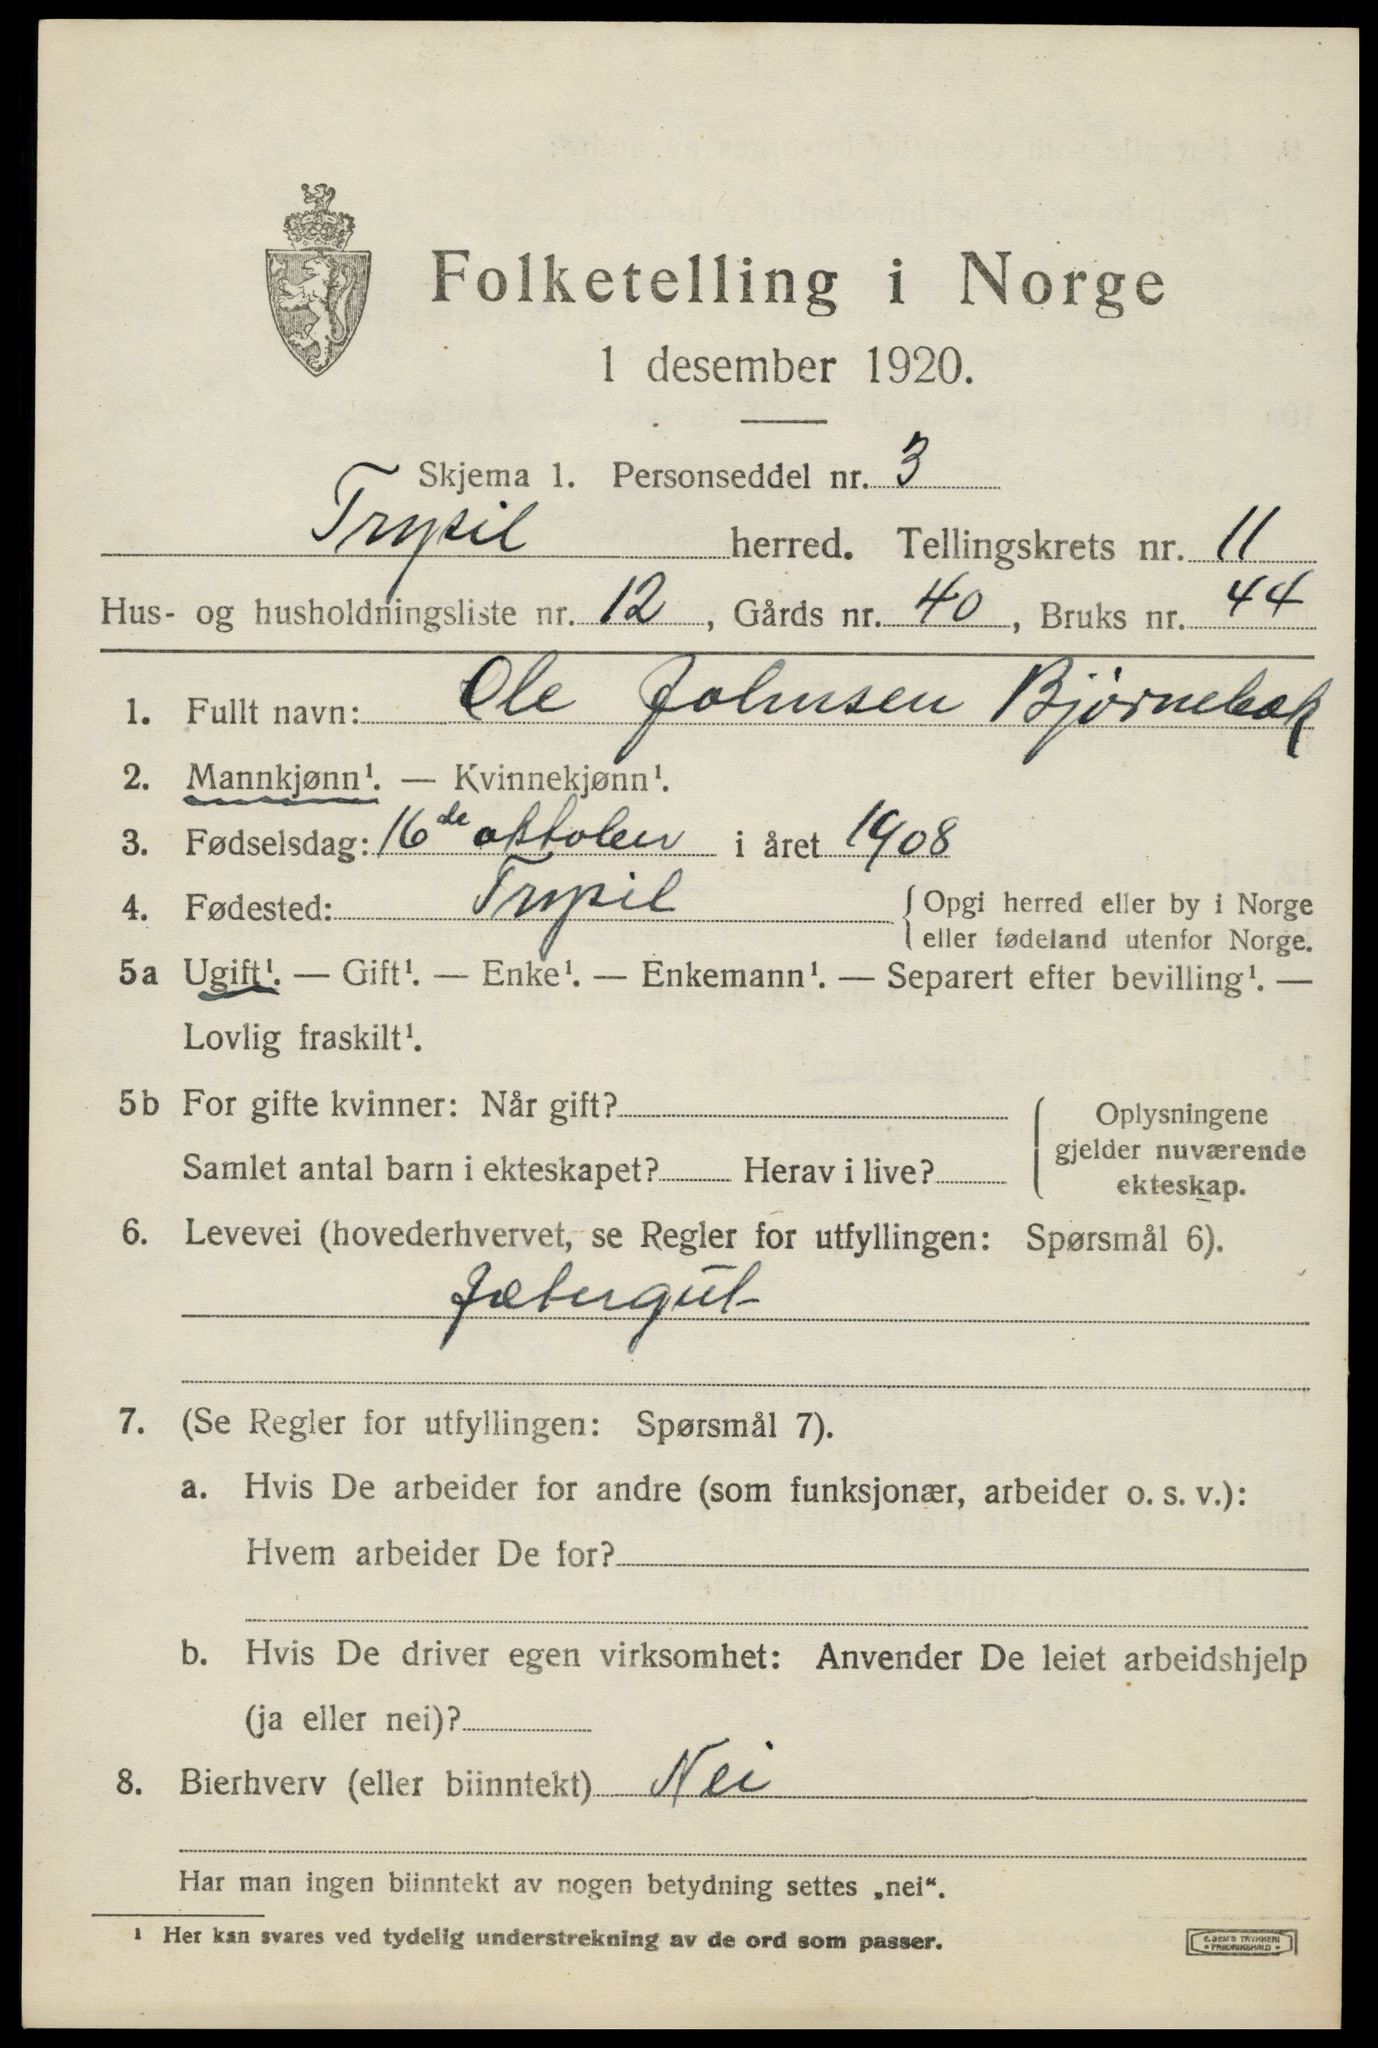 Folketelling i Norge
1 desember 1920.
Skjema 1. Personseddel nr. 3
Trysil herred. Tellingskrets nr. 11
Hus- og husholdningsliste nr. 12, Gårds nr. 40, Bruks nr. 44
1. Fullt navn: Ole Johnsen Bjørnebæk
2. Mannkjønn¹. — Kvinnekjønn¹.
3. Fødselsdag: 16de oktober i året 1908
4. Fødested: Trysil { Opgi herred eller by i Norge
eller fødeland utenfor Norge.
5a Ugift¹. — Gift¹. — Enke¹. — Enkemann¹. — Separert efter bevilling¹. —
Lovlig fraskilt¹.
5b For gifte kvinner: Når gift?
Samlet antal barn i ekteskapet? Herav i live?
Oplysningene
gjelder nuværende
ekteskap.
6. Levevei (hovederhvervet, se Regler for utfyllingen: Spørsmål 6).
Jætergut
7. (Se Regler for utfyllingen: Spørsmål 7).
a. Hvis De arbeider for andre (som funksjonær, arbeider o. s. v.):
Hvem arbeider De for?
b. Hvis De driver egen virksomhet: Anvender De leiet arbeidshjelp
(ja eller nei)?
8. Bierhverv (eller biinntekt) Nei
Har man ingen biinntekt av nogen betydning settes „nei“.
¹ Her kan svares ved tydelig understrekning av de ord som passer.
E. SEM'S TRYKKERI
* FREDRIKSHALD *